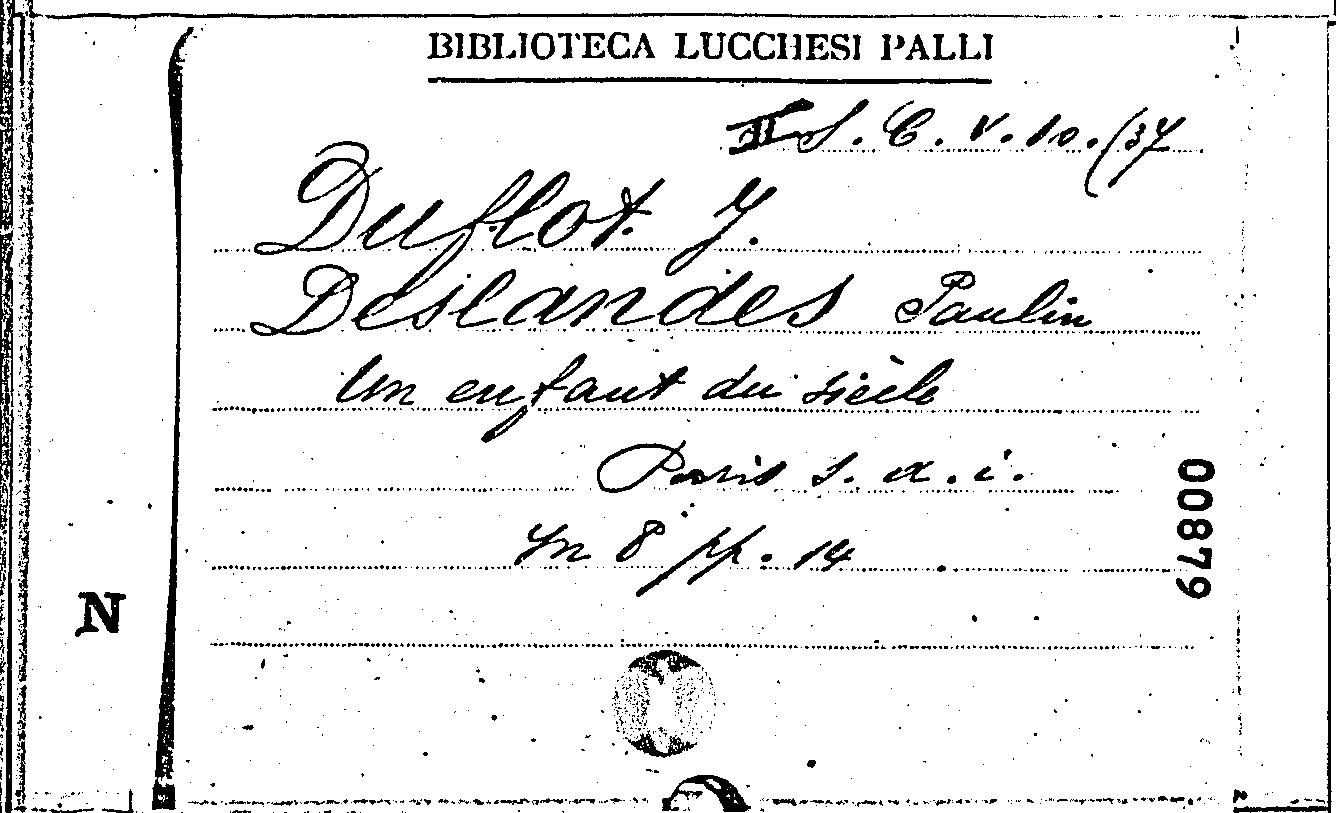 BIBLIOTECA LUCCHESI PALLI
II S. C. V. 10. (37
Duflot. J.
Deslandes Paulin
Un enfant du siècle
Paris s. a. i.
In 8 pp. 14
00879
N